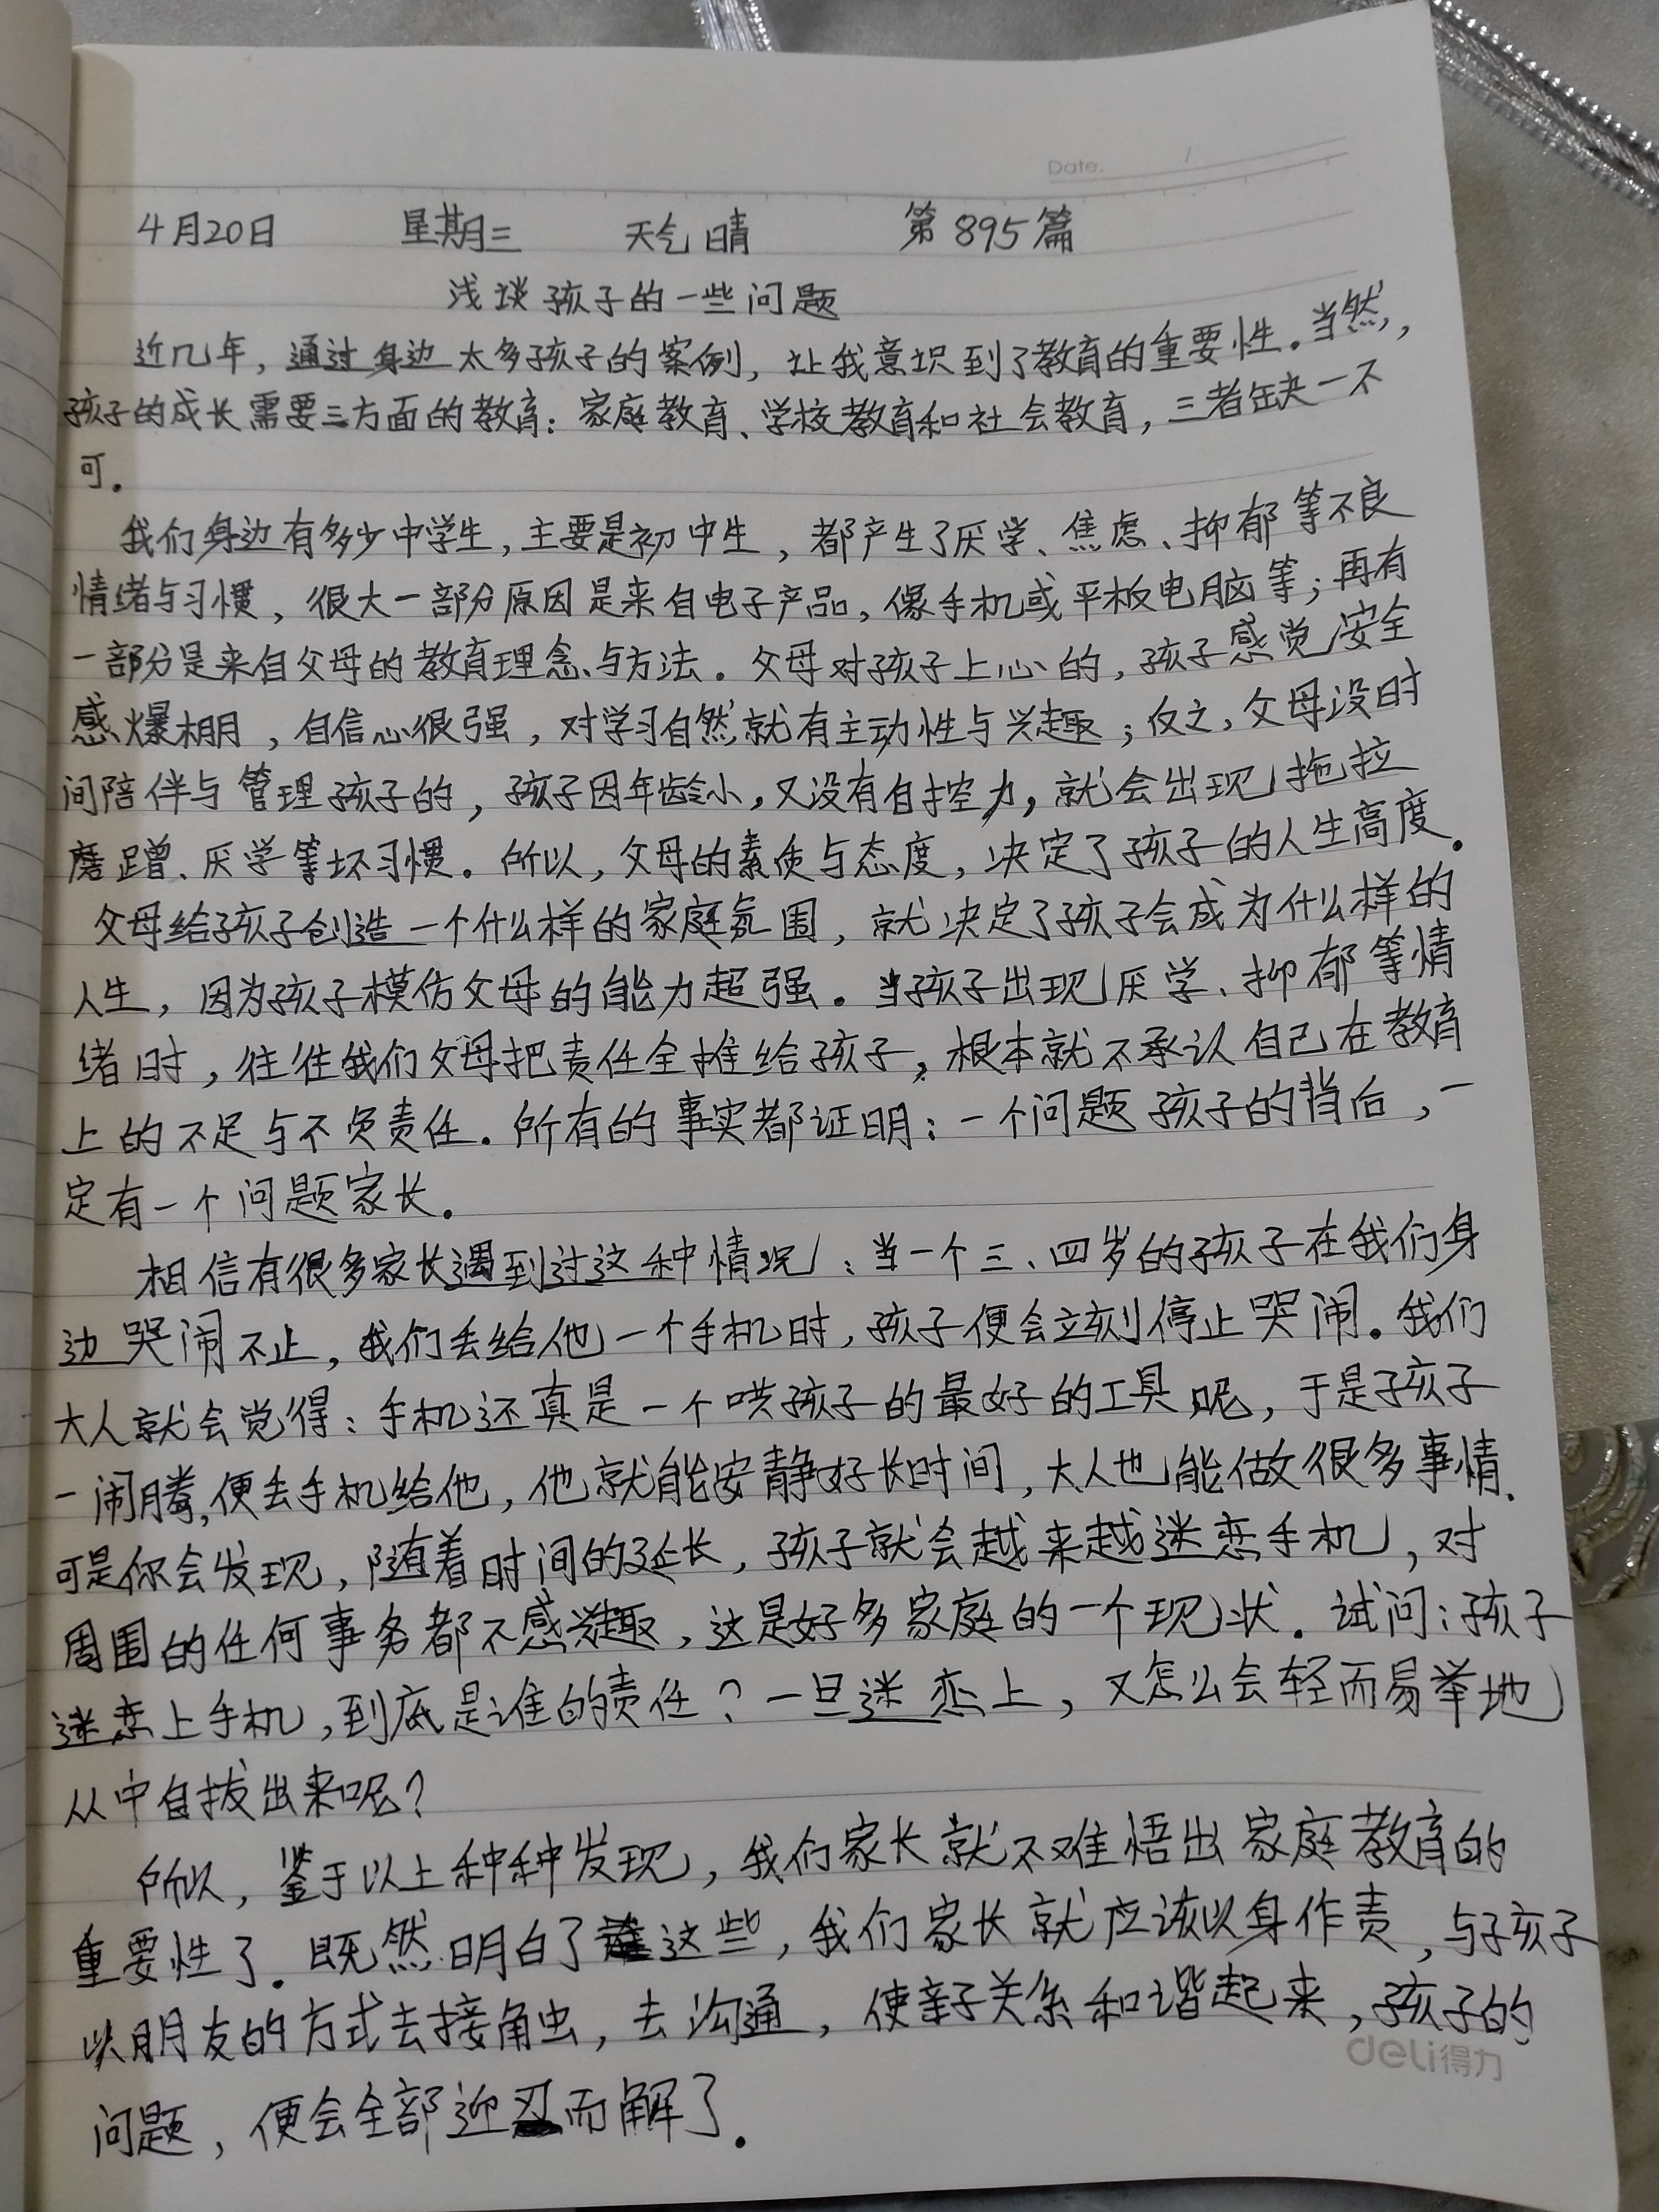 Date. /
4月20日 星期三 天气晴 第895篇
浅谈孩子的一些问题
近几年，通过身边太多孩子的案例，让我意识到了教育的重要性。当然，
孩子的成长需要三方面的教育：家庭教育、学校教育和社会教育，三者缺一不
可。
我们身边有多少中学生，主要是初中生，都产生了厌学、焦虑、抑郁等不良
情绪与习惯，很大一部分原因是来自电子产品，像手机或平板电脑等；再有
一部分是来自父母的教育理念与方法。父母对孩子上心的，孩子感觉安全
感爆棚，自信心很强，对学习自然就有主动性与兴趣；反之，父母没时
间陪伴与管理孩子的，孩子因年龄小，又没有自控力，就会出现拖拉
磨蹭、厌学等坏习惯。所以，父母的素质与态度，决定了孩子的人生高度。
父母给孩子创造一个什么样的家庭氛围，就决定了孩子会成为什么样的
人生，因为孩子模仿父母的能力超强。当孩子出现厌学、抑郁等情
绪时，往往我们父母把责任全推给孩子，根本就不承认自己在教育
上的不足与不负责任。所有的事实都证明：一个问题孩子的背后，一
定有一个问题家长。
相信有很多家长遇到过这种情况：当一个三、四岁的孩子在我们身
边哭闹不止，我们丢给他一个手机时，孩子便会立刻停止哭闹。我们
大人就会觉得：手机还真是一个哄孩子的最好的工具呢，于是孩子
一闹腾，便丢手机给他，他就能安静好长时间，大人也能做很多事情.
可是你会发现，随着时间的延长，孩子就会越来越迷恋手机，对
周围的任何事务都不感兴趣，这是好多家庭的一个现状. 试问：孩子
迷恋上手机，到底是谁的责任？一旦迷恋上，又怎么会轻而易举地
从中自拔出来呢？
所以，鉴于以上种种发现，我们家长就不难悟出家庭教育的
重要性了。既然明白了这些，我们家长就应该以身作责，与孩子
以朋友的方式去接触，去沟通，使亲子关系和谐起来，孩子的
问题，便会全部迎刃而解了。
deli得力